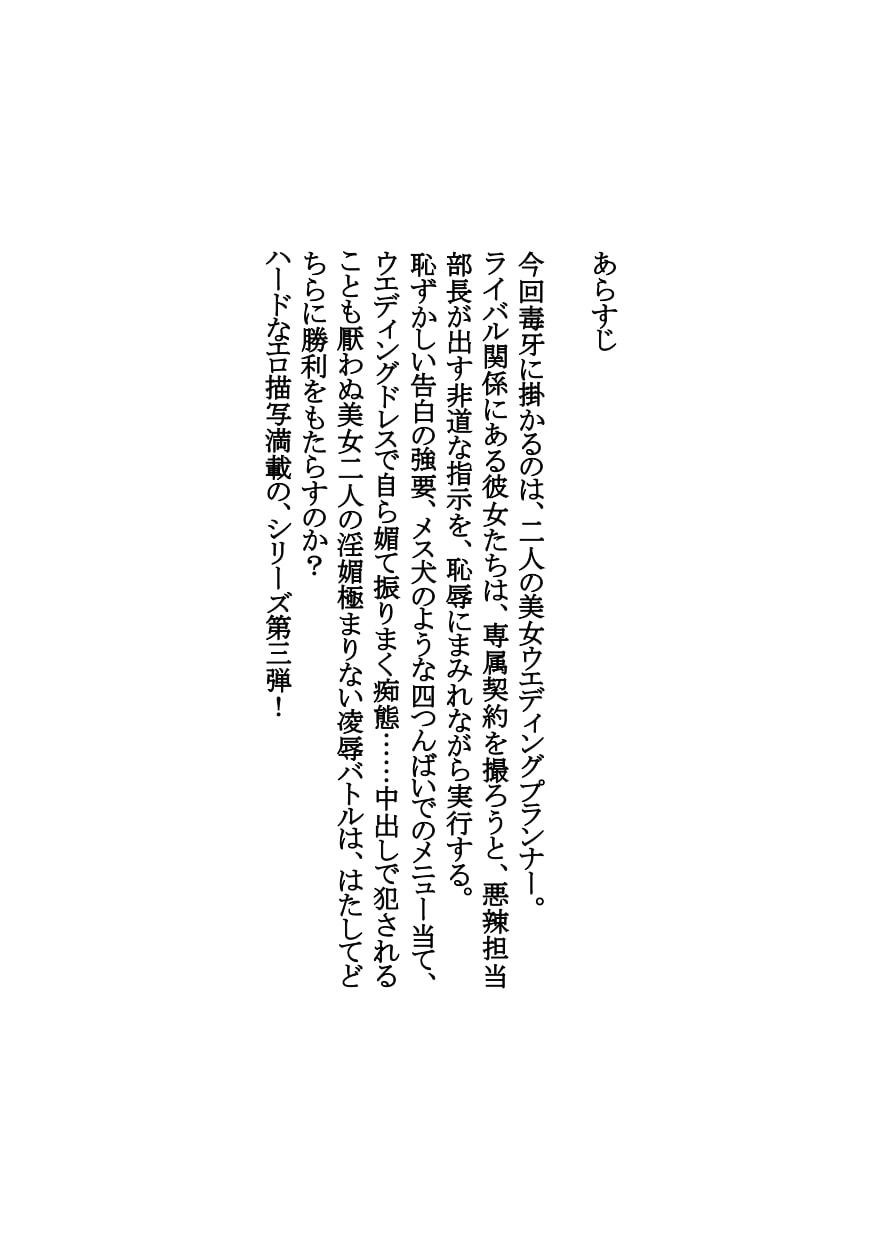 あらすじ
今回毒牙に掛かるのは、二人の美女ウエディングプランナー。
ライバル関係にある彼女たちは、専属契約を撮ろうと、悪辣担当
部長が出す非道な指示を、恥辱にまみれながら実行する。
恥ずかしい告白の強要、メス犬のような四つんばいでのメニュー当て、
ウエディングドレスで自ら媚て振りまく痴態……中出しで犯される
ことも厭わぬ美女二人の淫媚極まりない凌辱バトルは、はたしてど
ちらに勝利をもたらすのか？
ハードなエロ描写満載の、シリーズ第三弾！